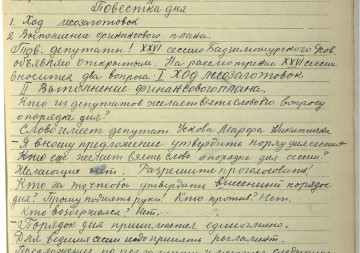 Повестка дня
1. Ход лесозаготовок
2. Выполнение финансового плана.
Тов. депутаты! XXVI сессию сов.
объявляю открытым. На рассмотрение XXVI сессии
вносится два вопроса: I Ход лесозаготовок
II Выполнение финансового плана.
Кто из депутатов желает взять слово по вопросу
о порядке дня?
- Слово имеет депутат Ускова Марфа
- Я вношу предложение утвердить порядок сессии
- Кто еще желает взять слово о порядке дня сессии?
Желающих нет. Разрешите проголосовать
Кто за то чтобы утвердить внесенный порядок
дня? Прошу поднять руки! Кто против? Нет.
Кто воздержался? Нет.
- Порядок дня принимается единогласно.
Для ведения сессии надо принять регламент.